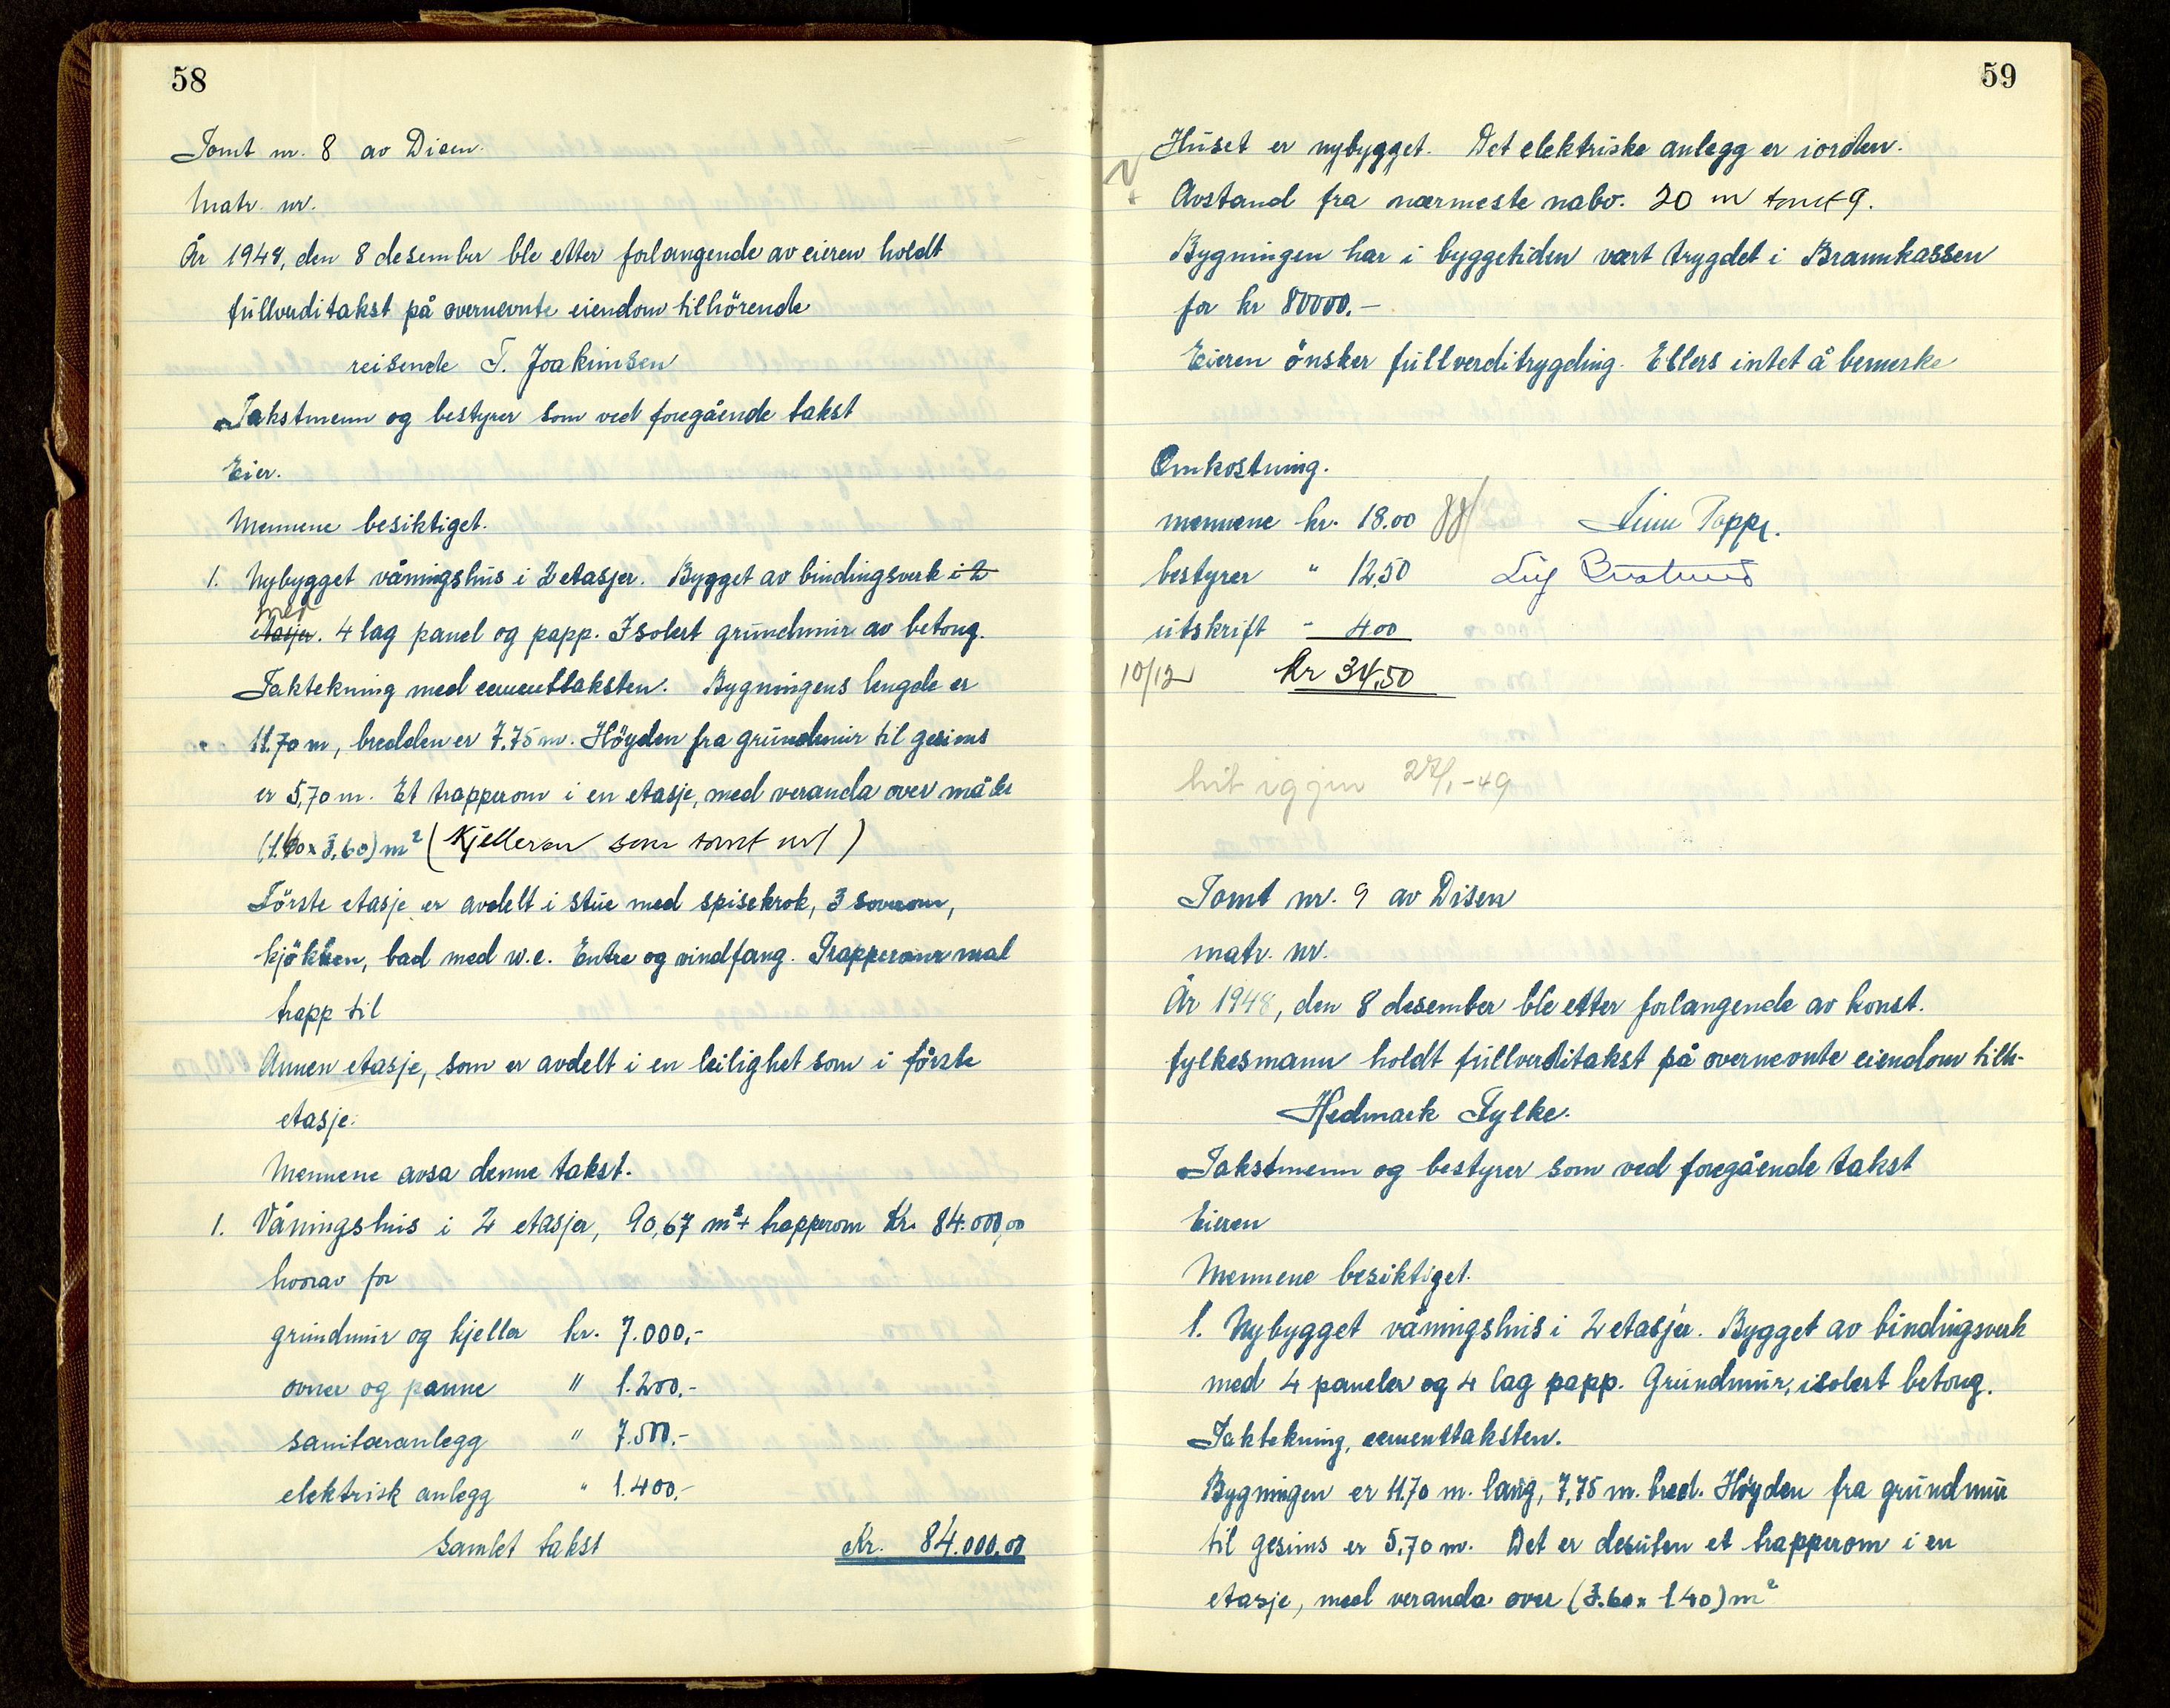 58
Tomt nr. 8 av Disen.
Matr. nr.
År 1948, den 8 desember ble etter forlangende av eieren holdt
fullverditakst på overnevnte eiendom tilhörende
reisende T. Joakimsen
Takstmenn og bestyrer som ved foregående takst
Eier.
Mennene besiktiget.
1. Nybygget våningshus i 2 etasjer. Bygget av bindingsverk i 2
med
etasjer. 4 lag panel og papp. Isolert grundmur av betong.
Taktekning med cementtaksten. Bygningens lengde er
11.70 m, bredden er 7.75 m. Höyden fra grundmur til gesims
er 5,70 m. Et trapperom i en etasje, med veranda over måler
(1.40 x 3,60) m² (Kjelleren som tomt nr 1)
Förste etasje er avdelt i stue med spisekrok, 3 soverom,
kjökken, bad med w.c. Entre og vindfang. Trapperom med
trapp til
Annen etasje, som er avdelt i en leilighet som i förste
etasje.
Mennene avsa denne takst.
1. Våningshus i 2 etasjer, 90,67 m² + trapperom Kr. 84.000,00
hvorav for
grundmur og kjeller kr. 7.000,-
ovner og panne " 1.200.-
sanitæranlegg " 7.500.-
elektrisk anlegg " 1.400.-
Samlet takst Kr. 84.000,00
59
Huset er nybygget. Det elektriske anlegg er iorden.
Avstand fra nærmeste nabo. 20 m tomt 9.
Bygningen har i byggetiden vært trygdet i Brannkassen
for kr 80000.-
Eieren önsker fullverditrygding. Ellers intet å bemerke
Omkostning.
mennene kr. 18.00
bestyrer " 12,50
utskrift - 4 00
10/12 kr 34,50
hit igjen 27/1-49
Tomt nr. 9 av Disen
matr. nr.
År 1948, den 8 desember ble etter forlangende av konst.
fylkesmann holdt fullverditakst på overnevnte eiendom tilh-
Hedmark Fylke.
Takstmenn og bestyrer som ved foregående takst
Eieren
Mennene besiktiget.
1. Nybygget våningshus i 2 etasjer. Bygget av bindingsverk
med 4 paneler og 4 lag papp. Grundmur, isolert betong.
Taktekning, cementtaksten.
Bygningen er 11.70 m. lang, 7,75 m. bred. Höyden fra grundmur
til gesims er 5,70 m. Det er desuten et trapperom i en
etasje, med veranda over (3.60 x 1.40) m²